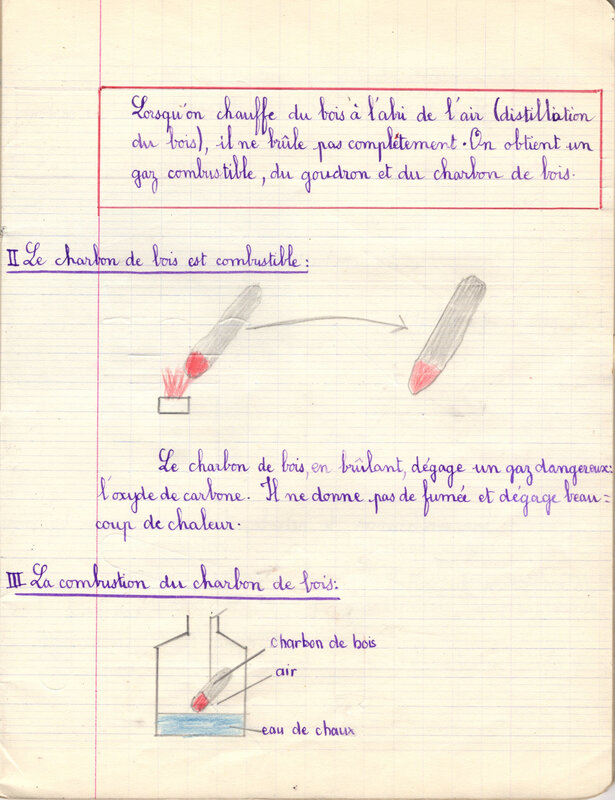 Lorsqu'on chauffe du bois à l'abri de l'air (distillation
du bois), il ne brûle pas complètement. On obtient un
gaz combustible, du goudron et du charbon de bois.
II Le charbon de bois est combustible :
Le charbon de bois, en brûlant, dégage un gaz dangereux:
l'oxyde de carbone. Il ne donne pas de fumée et dégage beau=
coup de chaleur.
III La combustion du charbon de bois:
charbon de bois
air
eau de chaux